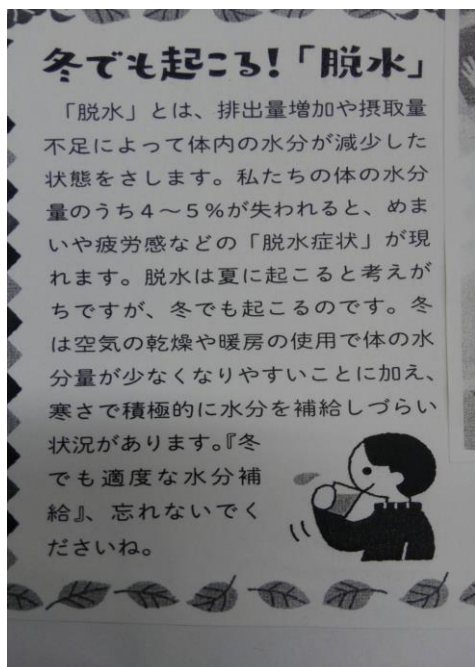 冬でも起こる！「脱水」
「脱水」とは、排出量増加や摂取量
不足によって体内の水分が減少した
状態をさします。私たちの体の水分
量のうち４～５％が失われると、めま
いや疲労感などの「脱水症状」が現
れます。脱水は夏に起こると考えが
ちですが、冬でも起こるのです。冬
は空気の乾燥や暖房の使用で体の水
分量が少なくなりやすいことに加え、
寒さで積極的に水分を補給しづらい
状況があります。『冬
でも適度な水分補
給』、忘れないでく
ださいね。